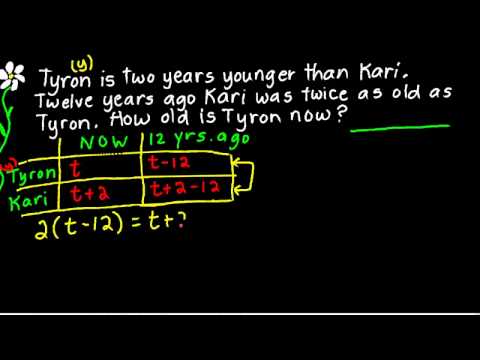 (y)
Tyron is two years younger than Kari.
Twelve years ago Kari was twice as old as
Tyron. How old is Tyron now?
NOW 12 yrs. ago
Tyron t t-12
Kari t+2 t+2-12
2(t-12)=t+